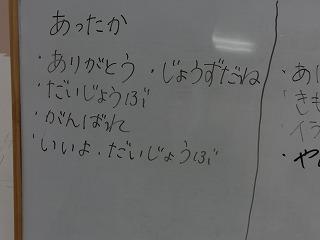 あったか
・ありがとう ・じょうずだね
・だいじょうぶ
・がんばれ
・いいよ・だいじょうぶ
・あ
きも
イラ
・や